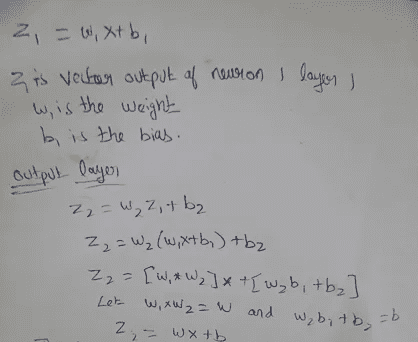 z₁ = w₁x+b₁
z₁ is vector output of neuron 1 layer 1
w₁ is the weight
b₁ is the bias.
output layer
z₂ = w₂z₁+b₂
z₂ = w₂(w₁x+b₁)+b₂
z₂ = [w₁*w₂]x+[w₂b₁+b₂]
Let w₁xw₂=w and w₂b₁+b₂=b
z₂= wx+b